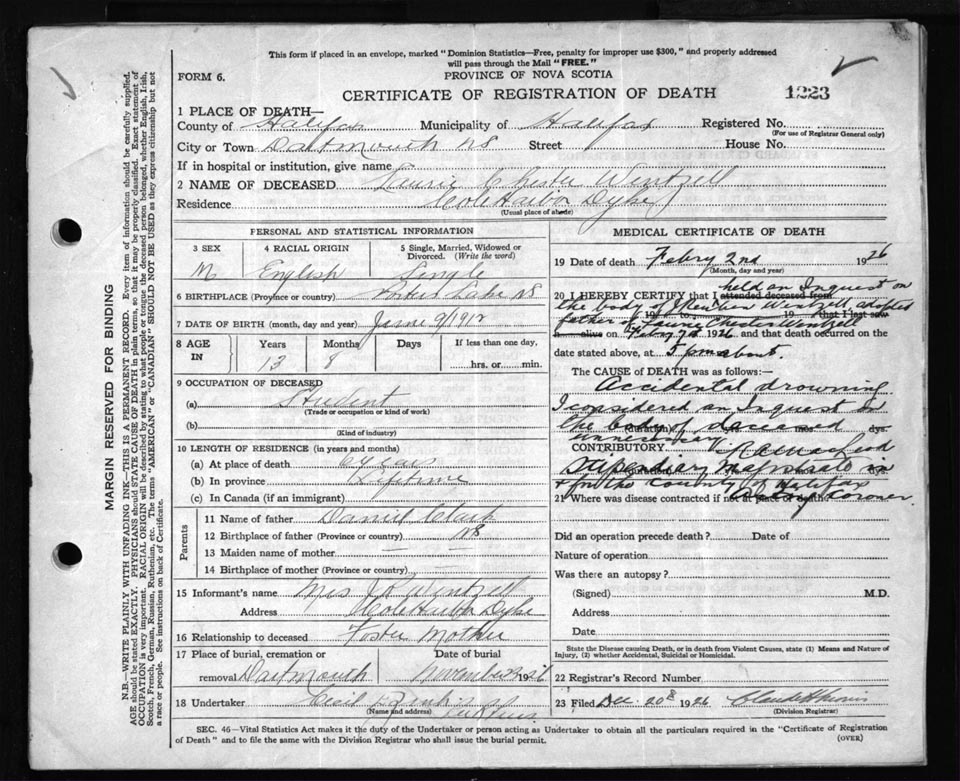 This form if placed in an envelope, marked "Dominion Statistics—Free, penalty for improper use $300," and properly addressed
will pass through the Mail "FREE."
FORM 6.
PROVINCE OF NOVA SCOTIA
CERTIFICATE OF REGISTRATION OF DEATH
1223
1 PLACE OF DEATH—
County of Halifax Municipality of Halifax Registered No.
(For use of Registrar General only)
City or Town Dartmouth NS Street House No.
If in hospital or institution, give name
2 NAME OF DECEASED Laurie Chester Wentzell
Residence Cole Harbor Dyke
(Usual place of abode)
PERSONAL AND STATISTICAL INFORMATION
3 SEX 4 RACIAL ORIGIN 5 Single, Married, Widowed or
Divorced. (Write the word)
M English Single
6 BIRTHPLACE (Province or country) Lake NS
7 DATE OF BIRTH (month, day and year) June 9/1912
8 AGE IN Years Months Days If less than one day,
13 8 hrs. or min.
9 OCCUPATION OF DECEASED
(a) Student
(Trade or occupation or kind of work)
(b)
(Kind of industry)
10 LENGTH OF RESIDENCE (in years and months)
(a) At place of death 6 years
(b) In province Lifetime
(c) In Canada (if an immigrant)
Parents
11 Name of father Daniel Clark
12 Birthplace of father (Province or country) NS
13 Maiden name of mother — —
14 Birthplace of mother (Province or country) —
15 Informant's name Mrs J R Wentzell
Address Cole Harbor Dyke
16 Relationship to deceased Foster Mother
17 Place of burial, cremation or Date of burial
removal Dartmouth November 1926
18 Undertaker
(Name and address)
MEDICAL CERTIFICATE OF DEATH
19 Date of death Febry 2nd 1926
(Month, day and year)
20 I HEREBY CERTIFY that I attended deceased from held an Inquest on
the body of Reuben Wentzell adopted
19 to 19 that I last saw
father of Laurie Chester Wentzell
h alive on Febry 2d 1926, and that death occurred on
date stated above, at 5 pm about.
The CAUSE of DEATH was as follows:—
Accidental drowning
I considered an Inquest on
the body of deceased
(duration) yrs. mos. dys.
unnecessary
CONTRIBUTORY
Stipendiary Magistrate in
& for the County of Halifax
21 Where was disease contracted if not at place of death? Coroner
Did an operation precede death? Date of
Nature of operation
Was there an autopsy?
(Signed) M.D.
Address
Date
State the Disease causing Death, or in death from Violent Causes, state (1) Means and Nature of
Injury, (2) whether Accidental, Suicidal or Homicidal.
22 Registrar's Record Number
23 Filed Dec. 20 1926
(Division Registrar)
SEC. 46—Vital Statistics Act makes it the duty of the Undertaker or person acting as Undertaker to obtain all the particulars required in the "Certificate of Registration
of Death" and to file the same with the Division Registrar who shall issue the burial permit.
(OVER)
MARGIN RESERVED FOR BINDING
N.B.—WRITE PLAINLY WITH UNFADING INK—THIS IS A PERMANENT RECORD. Every item of information should be carefully supplied.
AGE should be stated EXACTLY. PHYSICIANS should STATE CAUSE OF DEATH in plain terms, so that it may be properly classified. Exact statement of
OCCUPATION is very important. RACIAL ORIGIN will be described by stating to what people or tongue the deceased person belonged, whether English, Irish,
Scotch, French, German, Russian, Ruthenian, etc. The terms "AMERICAN" or "CANADIAN" SHOULD NOT BE USED as they express citizenship but not
a race or people. See instructions on back of Certificate.